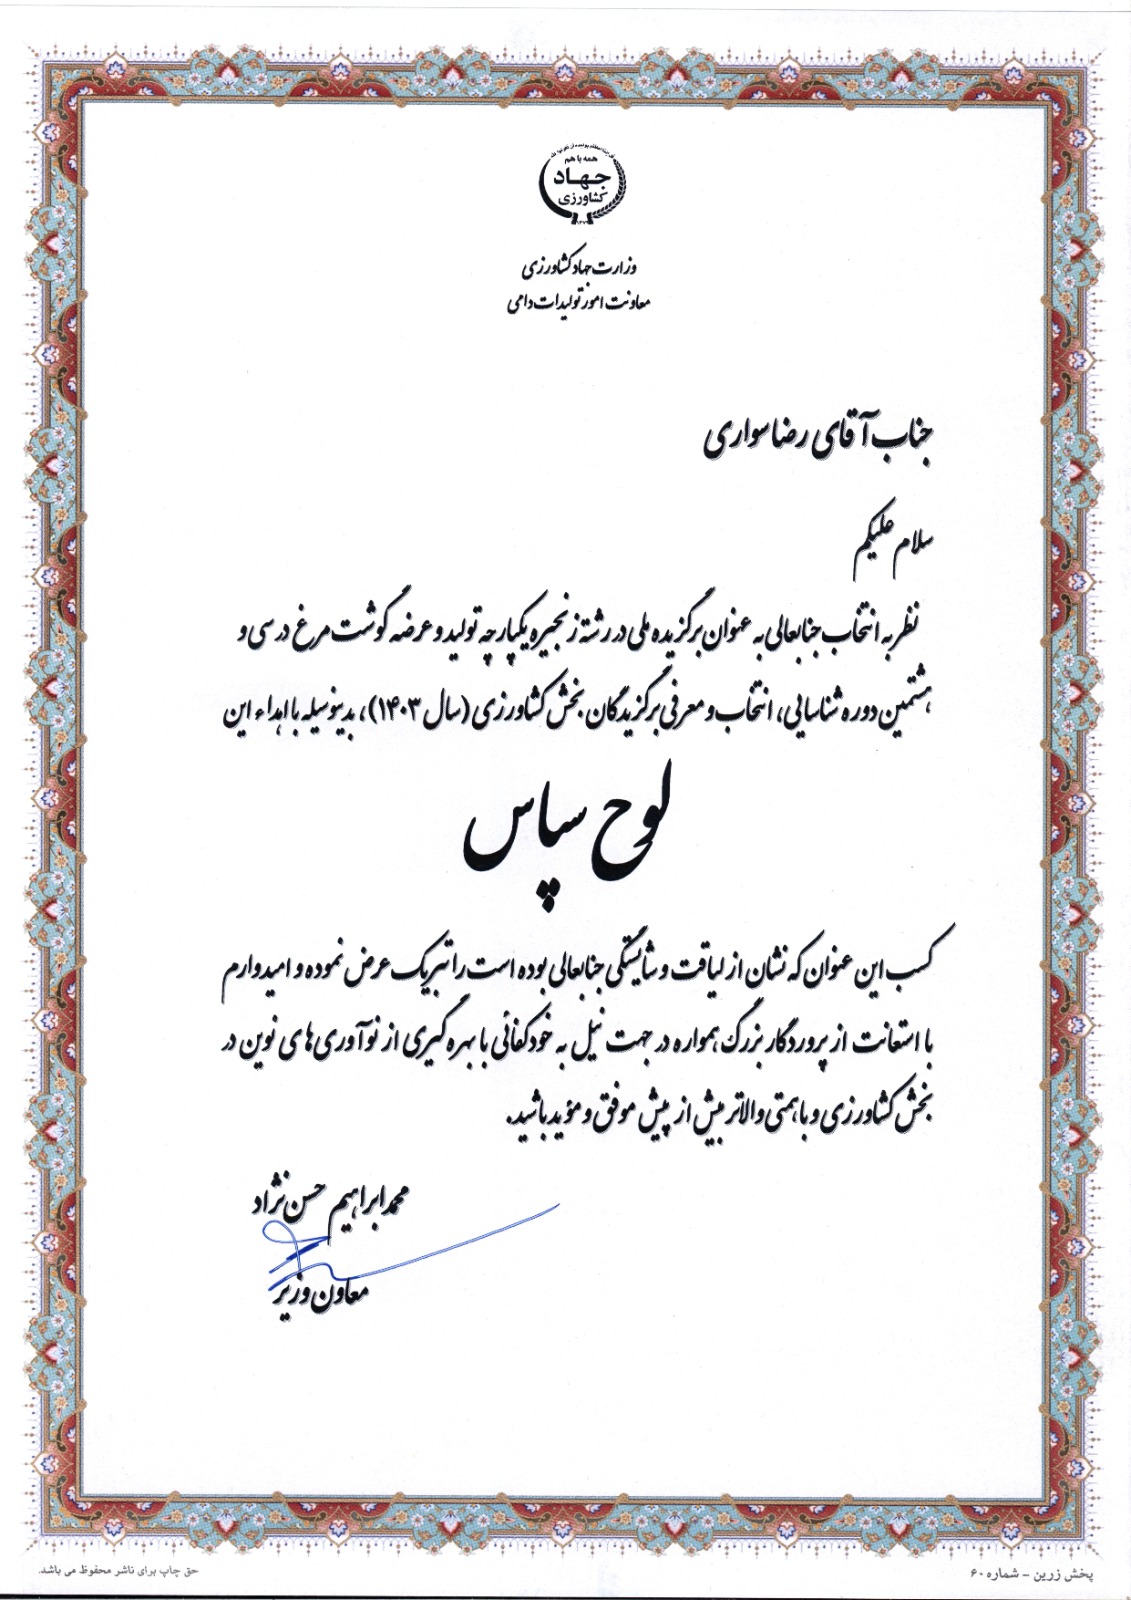 همه با هم
جهاد
کشاورزی
وزارت جهاد کشاورزی
معاونت امور تولیدات دامی
جناب آقای رضا سواری
سلام علیکم
نظر به انتخاب جنابعالی به عنوان برگزیده ملی در رشته زنجیره یکپارچه تولید و عرضه گوشت مرغ در سی و
هشتمین دوره شناسایی، انتخاب و معرفی برگزیدگان بخش کشاورزی (سال ۱۴۰۳)، بدینوسیله با اهداء این
لوح سپاس
کسب این عنوان که نشان از لیاقت و شایستگی جنابعالی بوده است را تبریک عرض نموده و امیدوارم
با استعانت از پروردگار بزرگ همواره در جهت نیل به خودکفائی با بهره گیری از نوآوری‌های نوین در
بخش کشاورزی و با همتی والاتر بیش از پیش موفق و مؤید باشید.
محمد ابراهیم حسن نژاد
معاون وزیر
پخش زرین - شماره ۶۰
حق چاپ برای ناشر محفوظ می باشد.